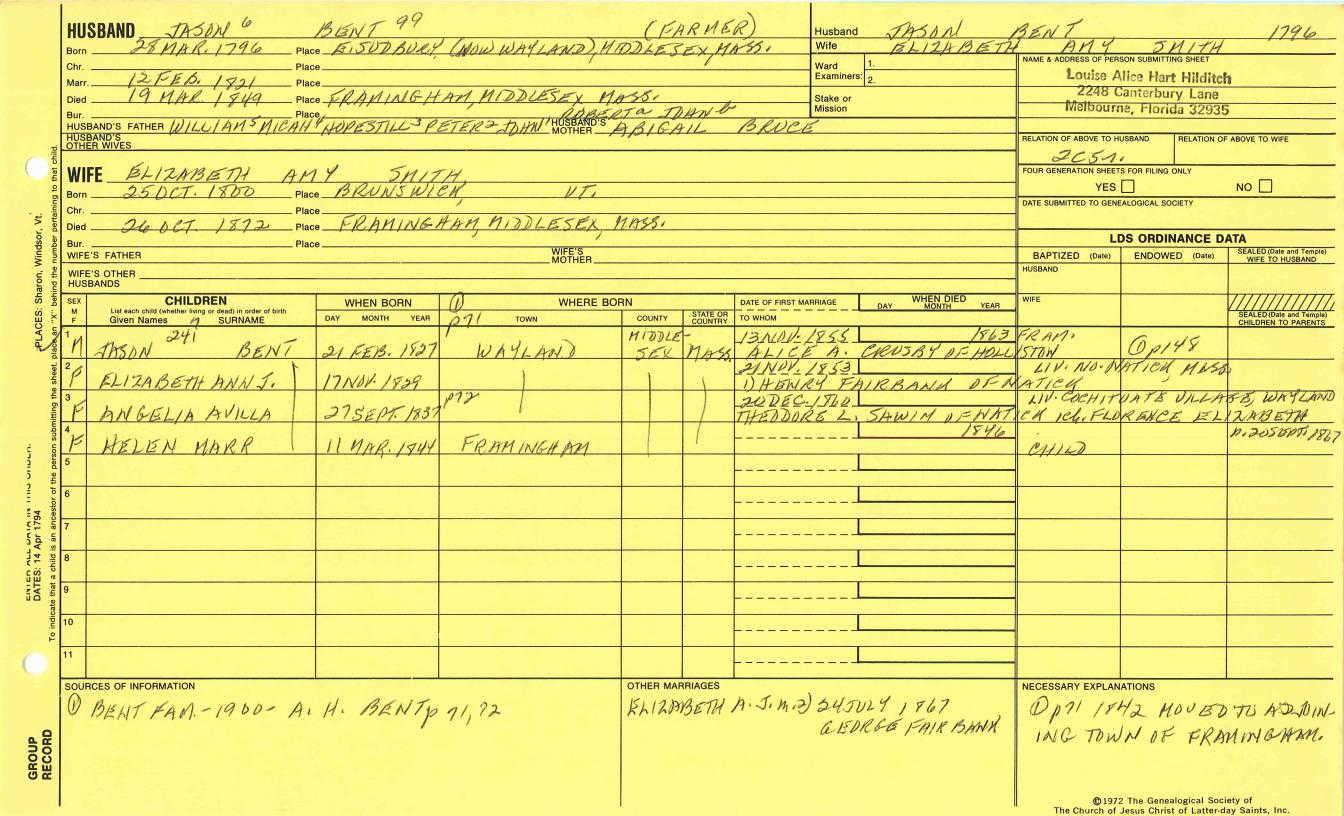 HUSBAND JASON 6 BENT 99 (FARMER)
Born 28 MAR. 1796 Place E. SUDBURY, (NOW WAYLAND), MIDDLESEX, MASS.
Chr. Place
Marr. 12 FEB. 1821 Place
Died 19 MAR. 1849 Place FRAMINGHAM, MIDDLESEX, MASS.
Bur. Place ROBERT a JOHN b
HUSBAND'S FATHER WILLIAM 5 MICAH 4 HOPESTILL 3 PETER 2 JOHN 1 HUSBAND'S MOTHER ABIGAIL BRUCE
HUSBAND'S OTHER WIVES
Husband JASON BENT 1796
Wife ELIZABETH AMY SMITH
Ward Examiners: 1. 2.
Stake or Mission
NAME & ADDRESS OF PERSON SUBMITTING SHEET
Louise Alice Hart Hilditch
2248 Canterbury Lane
Melbourne, Florida 32935
RELATION OF ABOVE TO HUSBAND RELATION OF ABOVE TO WIFE
2C5r.
FOUR GENERATION SHEETS FOR FILING ONLY
YES NO
DATE SUBMITTED TO GENEALOGICAL SOCIETY
WIFE ELIZABETH AMY SMITH
Born 25 OCT. 1800 Place BRUNSWICK, VT.
Chr. Place
Died 26 OCT. 1872 Place FRAMINGHAM, MIDDLESEX, MASS.
Bur. Place
WIFE'S FATHER WIFE'S MOTHER
WIFE'S OTHER HUSBANDS
LDS ORDINANCE DATA
BAPTIZED (Date) ENDOWED (Date) SEALED (Date and Temple) WIFE TO HUSBAND
HUSBAND
WIFE
SEALED (Date and Temple) CHILDREN TO PARENTS
SEX M F
CHILDREN
List each child (whether living or dead) in order of birth
Given Names SURNAME
WHEN BORN
DAY MONTH YEAR
① WHERE BORN
p71 TOWN COUNTY STATE OR COUNTRY
DATE OF FIRST MARRIAGE
TO WHOM
WHEN DIED
DAY MONTH YEAR
1 M JASON 241 BENT 21 FEB. 1827 WAYLAND MIDDLE-SEX MASS. 13 NOV. 1855 1863 FRAM.
ALICE A. CROSBY OF HOLLISTON ① p148
2 F ELIZABETH ANN J. 17 NOV. 1829 21 NOV. 1853 LIV. NO. NATICK, MASS.
1) HENRY FAIRBANK OF NATICK
3 F ANGELIA AVILLA 27 SEPT. 1837 p72 20 DEC. 1860 LIV. COCHITUATE VILLAGE, WAYLAND
THEODORE L. SAWIN OF NATICK 1ch. FLORENCE ELIZABETH
b. 20 SEPT. 1867
4 F HELEN MARR 11 MAR. 1844 FRAMINGHAM 1846 CHILD
5
6
7
8
9
10
11
SOURCES OF INFORMATION
① BENT FAM. - 1900 - A. H. BENT p 71, 72
OTHER MARRIAGES
ELIZABETH A. J. m. 2) 24 JULY 1867
GEORGE FAIRBANK
NECESSARY EXPLANATIONS
① p71 1842 MOVED TO ADJOIN-
ING TOWN OF FRAMINGHAM.
©1972 The Genealogical Society of
The Church of Jesus Christ of Latter-day Saints, Inc.
GROUP RECORD
DATES: 14 Apr 1794
PLACES: Sharon, Windsor, Vt.
To indicate that a child is an ancestor of the person submitting the sheet, place an "X" behind the number pertaining to that child.